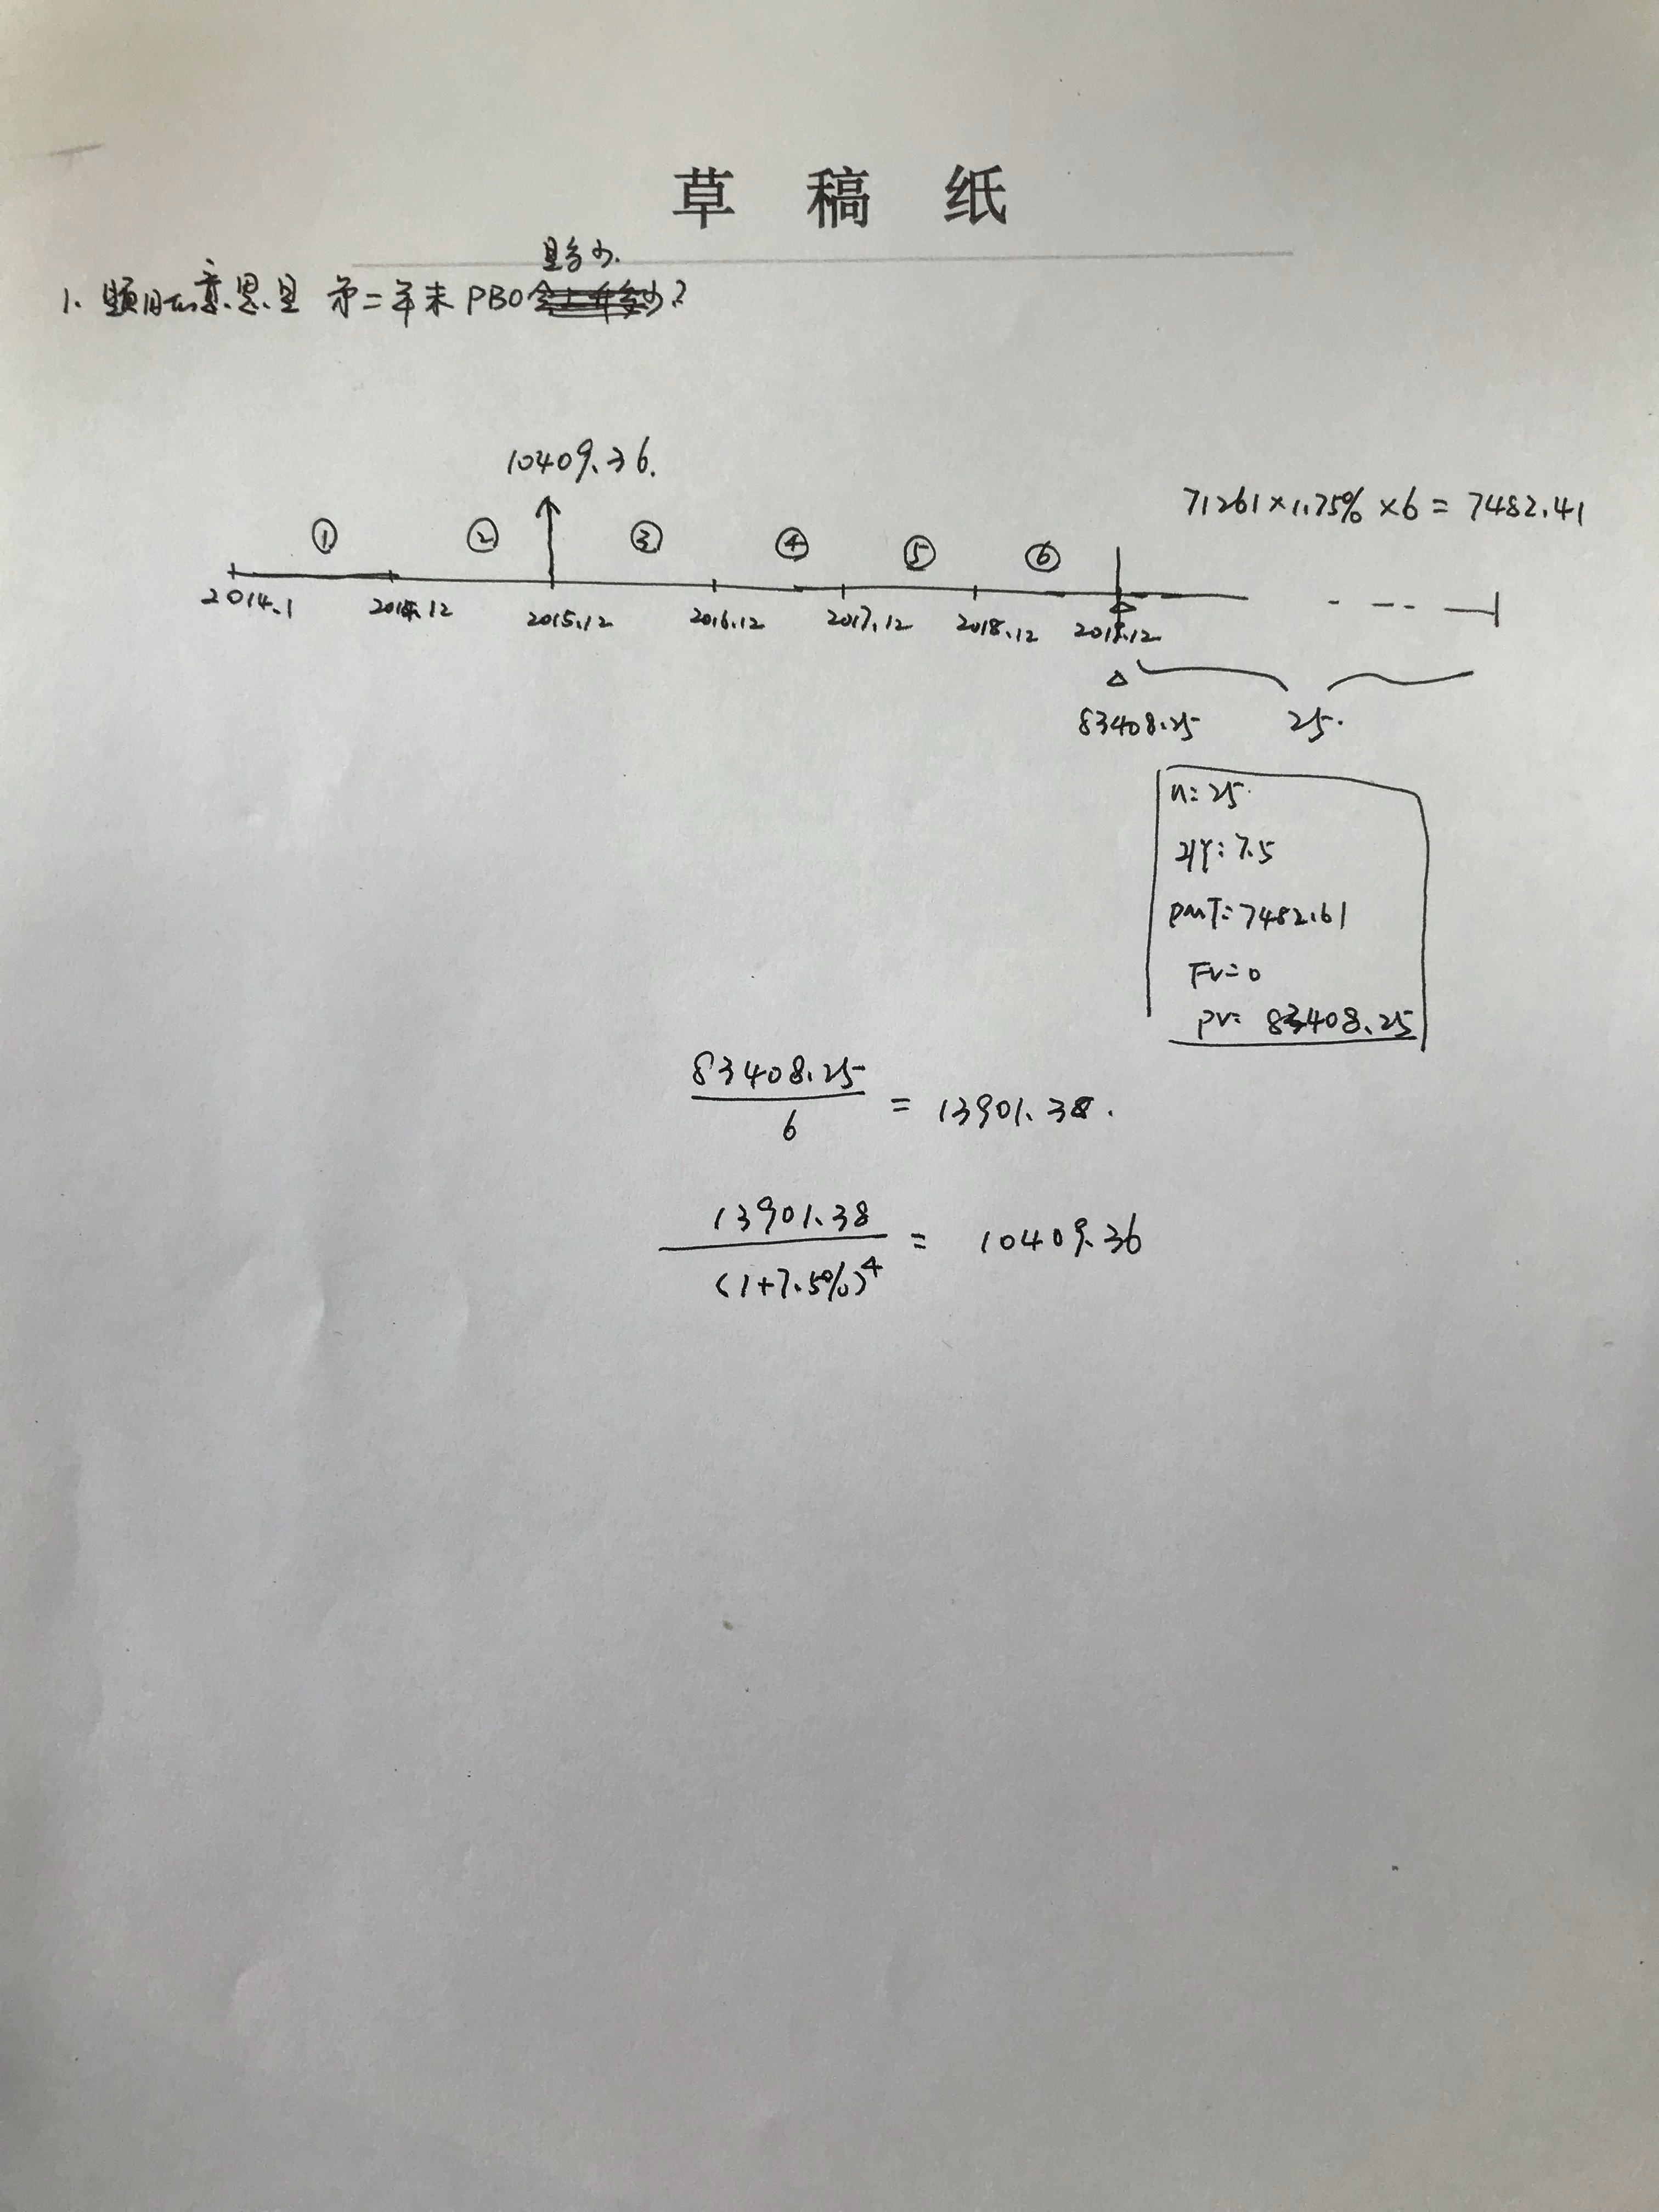 草稿纸
是多少.
1. 题目的意思是 第二年末 PBO ?
10409.36.
71261×1.75% ×6 = 7482.41
① ② ③ ④ ⑤ ⑥
2014.1 2014.12 2015.12 2016.12 2017.12 2018.12 2019.12
83408.25 25.
n: 25.
I/Y: 7.5
PMT: 7482.61
FV=0
PV= 83408.25
83408.25
6
= 13901.38.
13901.38
(1+7.5%)^4
= 10409.36